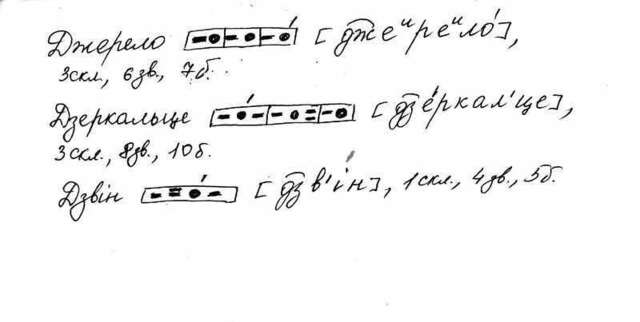 Джерело [дже^и ре^и ло́],
3скл., 6зв., 7б.
Дзеркальце [дзе́ркал'це],
3скл., 8зв., 10б.
Дзвін [дзв'ін], 1скл., 4зв., 5б.